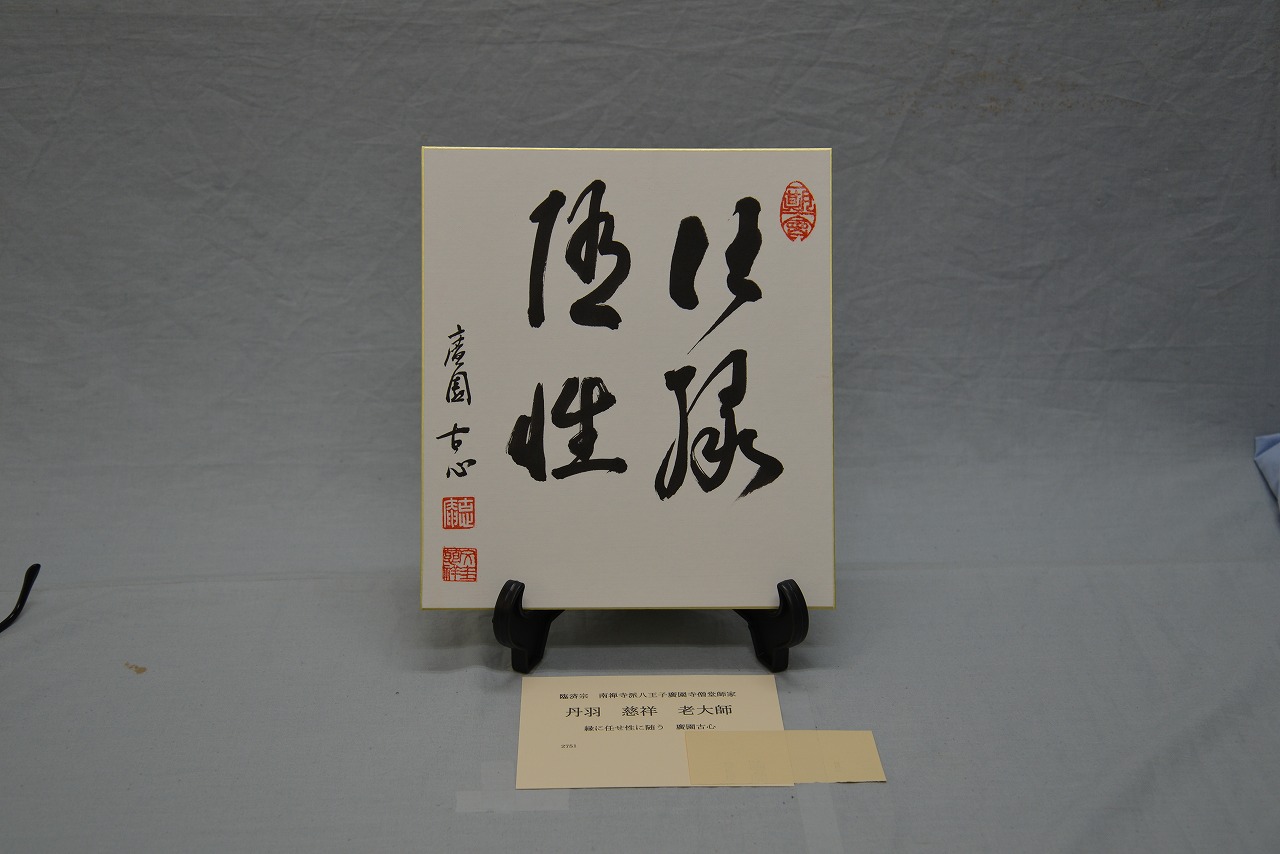 任縁
随性
廣園 古心
臨済宗　南禅寺派八王子廣園寺僧堂師家
丹羽　慈祥　老大師
縁に任せ性に随う　廣園古心
2751